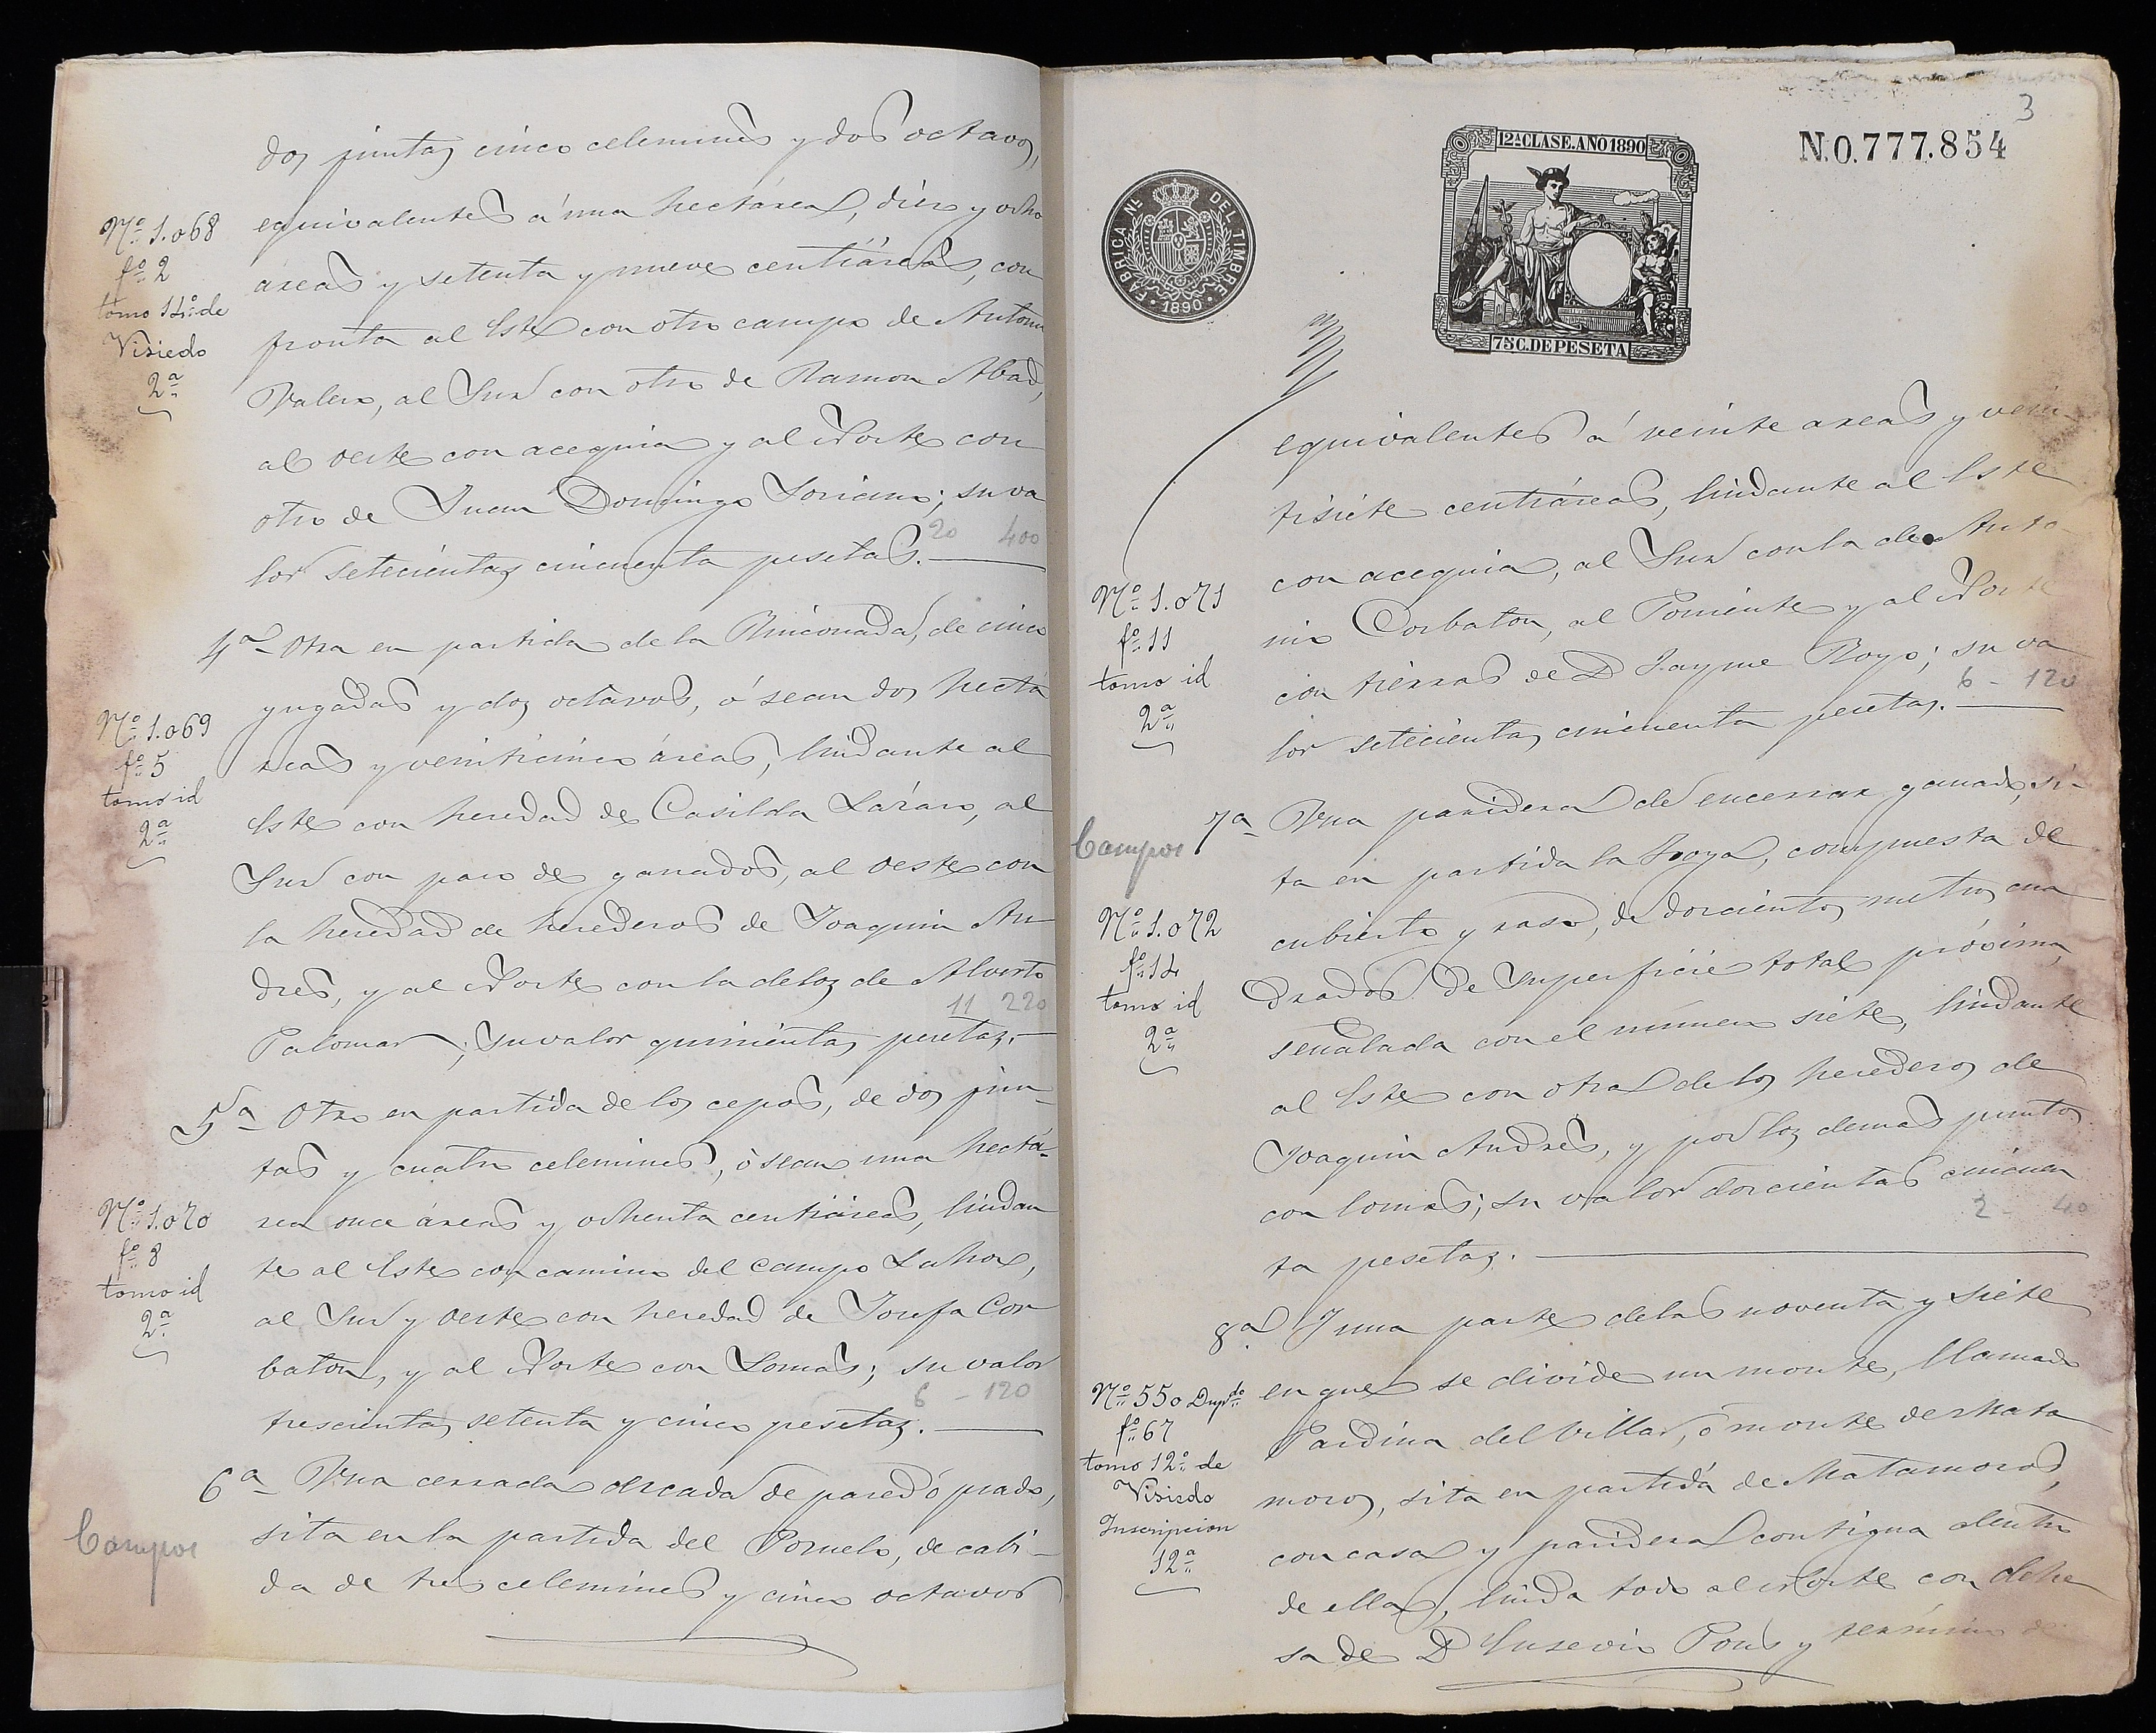 dos juntas cinco celemines y dos octavos,
equivalentes á una hectárea, diez y ocho
áreas y setenta y nueve centiáreas, con
fronta al Este con otro campo de Antonio
Valero, al Sur con otro de Ramon Abad,
al oeste con acequia y al Norte con
otro de Juan Domingo Soriano; su va
lor setecientas cincuenta pesetas.
20 400
Nº 1.068
fº 2
tomo 14º de
Visiedo
2ª
4ª Otra en partida de la Rinconada, de cinco
yugadas y dos octavos, ó sean dos hectá
reas y veinticinco áreas, lindante al
Este con heredad de Casilda Lázaro, al
Sur con paso de ganados, al oeste con
la heredad de herederos de Joaquin An
dres, y al Norte con la de los de Alverto
Palomar; su valor quinientas pesetas.
11 220
Nº 1.069
fº 5
tomo id
2ª
5ª Otro en partida de los cepos, de dos jun-
tas y cuatro celemines, ó sean una hectá-
rea once áreas y ochenta centiáreas, lindan
te al Este con camino del campo
al Sur y oeste con heredad de Josefa Cor
baton, y al Norte con Lomas; su valor
trescientas setenta y cinco pesetas.
6 - 120
Nº 1.070
fº 8
tomo id
2ª
6ª Una cerrada cercada de pared ó prado,
sita en la partida del de cabi-
da de tres celemines y cinco octavos
Campos
3
N.0.777.854
12ª CLASE. AÑO 1890
75 C. DE PESETA
FABRICA Nl. DEL TIMBRE
1890
equivalentes á veinte areas y vein-
tisiete centiáreas, lindante al Este
con acequia, al Sur con la de Anto-
nio Corbaton, al Poniente y al Norte
con tierras de D Jayme Royo; su va
lor setecientas cincuenta pesetas.
6 - 120
Nº 1.071
fº 11
tomo id
2ª
7ª Una paridera de encerrar ganado, si-
ta en partida la Hoya, compuesta de
cubierto y raso, de doscientos metros cua
drados de superficie total próxima,
señalada con el número siete, lindante
al Este con otra de los herederos de
Joaquin Andrés, y por los demas puntos
con lomas; su valor doscientas cincuen
ta pesetas.
2 - 40
Campos
Nº 1.072
fº 14
tomo id
2ª
8ª Y una parte de las noventa y siete
en que se divide un monte, llamado
Pardina del Villar, ó monte de Mata
moros, sita en partida de Matamoros,
con casa y paridera contigua dentro
de ella, linda todo al Norte con dehe
sa de D Eusevio Pons y término de
Nº 550 Dupdo
fº 67
tomo 12º de
Visiedo
Inscripcion
12ª